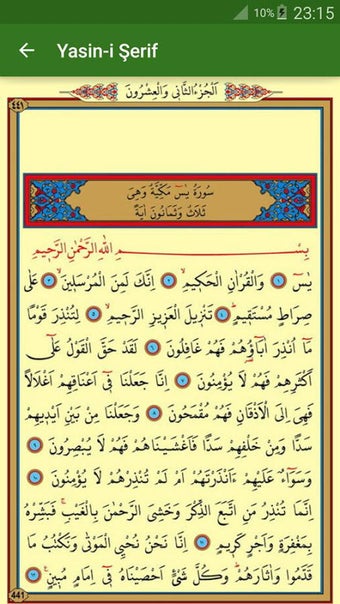 10% 23:15
← Yasin-i Şerif
اَلْجُزْءُ الثَّانِي وَالْعِشْرُونَ
٤٤١
سُورَةُ يٰسٓ مَكِّيَّةٌ وَهِيَ
ثَلَاثٌ وَثَمَانُونَ اٰيَةً
بِسْمِ اللّٰهِ الرَّحْمٰنِ الرَّحِيمِ
يٰسٓ ١ وَالْقُرْاٰنِ الْحَكِيمِ ٢ اِنَّكَ لَمِنَ الْمُرْسَلِينَ ٣ عَلٰى
صِرَاطٍ مُسْتَقِيمٍ ٤ تَنْزِيلَ الْعَزِيزِ الرَّحِيمِ ٥ لِتُنْذِرَ قَوْمًا
مَٓا اُنْذِرَ اٰبَٓاؤُ۬هُمْ فَهُمْ غَافِلُونَ ٦ لَقَدْ حَقَّ الْقَوْلُ عَلٰٓى
اَكْثَرِهِمْ فَهُمْ لَا يُؤْمِنُونَ ٧ اِنَّا جَعَلْنَا فِٓي اَعْنَاقِهِمْ اَغْلَالًا
فَهِيَ اِلَى الْاَذْقَانِ فَهُمْ مُقْمَحُونَ ٨ وَجَعَلْنَا مِنْ بَيْنِ اَيْدِيهِمْ
سَدًّا وَمِنْ خَلْفِهِمْ سَدًّا فَاَغْشَيْنَاهُمْ فَهُمْ لَا يُبْصِرُونَ ٩
وَسَوَٓاءٌ عَلَيْهِمْ ءَاَنْذَرْتَهُمْ اَمْ لَمْ تُنْذِرْهُمْ لَا يُؤْمِنُونَ ١٠
اِنَّمَا تُنْذِرُ مَنِ اتَّبَعَ الذِّكْرَ وَخَشِيَ الرَّحْمٰنَ بِالْغَيْبِۚ فَبَشِّرْهُ
بِمَغْفِرَةٍ وَاَجْرٍ كَرِيمٍ ١١ اِنَّا نَحْنُ نُحْيِ الْمَوْتٰى وَنَكْتُبُ مَا
قَدَّمُوا وَاٰثَارَهُمْۜ وَكُلَّ شَيْءٍ اَحْصَيْنَاهُ فِٓي اِمَامٍ مُبِينٍ ١٢
441 441